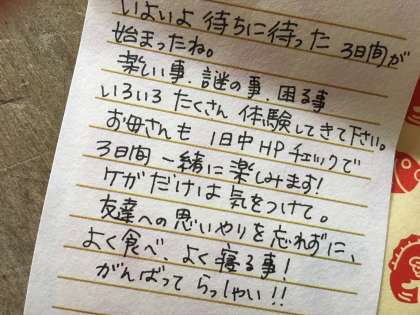 いよいよ 待ちに待った 3日間が
始まったね。
楽しい事、謎の事、困る事
いろいろ たくさん 体験してきて下さい。
お母さんも 1日中 HP チェックで
3日間 一緒に 楽しみます!
ケガだけは 気をつけて。
友達への思いやりを忘れずに、
よく食べ、よく寝る事!
がんばって らっしゃい!!